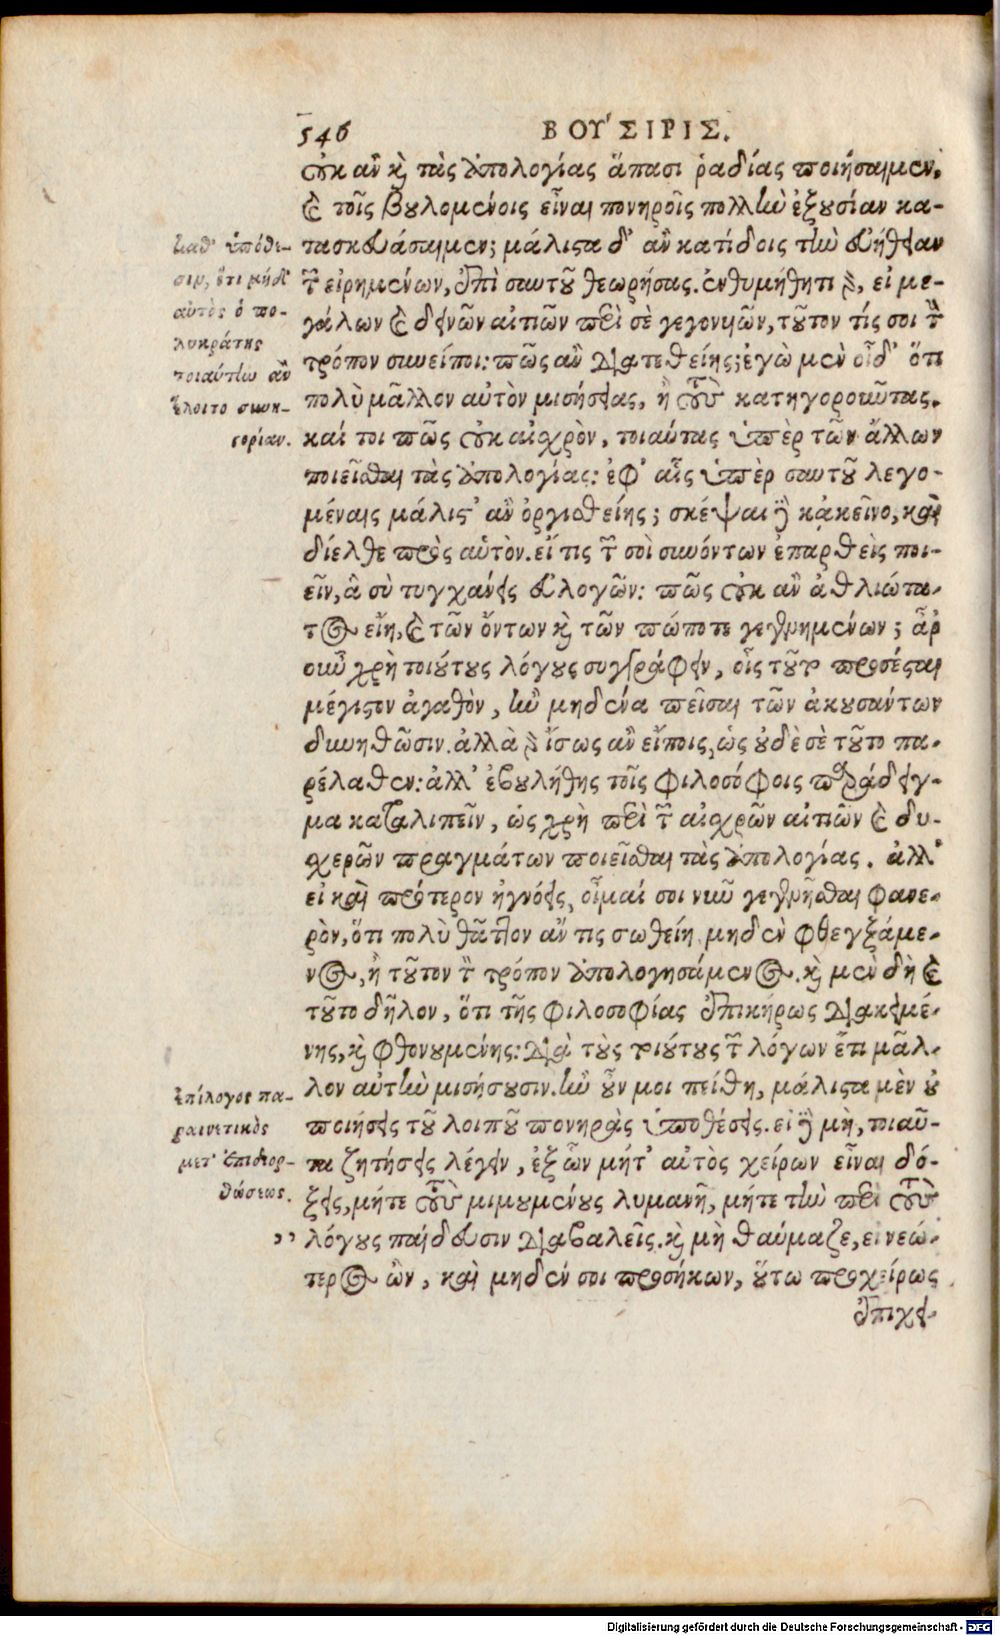 546 ΒΟΥ΄ΣΙΡΙΣ.
οὐκ ἂν καὶ τὰς ἀπολογίας ἅπασι ῥαδίας ποιήσαιμεν,
καὶ τοῖς βουλομένοις εἶναι πονηροῖς πολλὴν ἐξουσίαν κα-
τασκευάσαιμεν; μάλιστα δ' ἂν κατίδοις τὴν εὐήθειαν
τῶν εἰρημένων, ἐπὶ σαυτοῦ θεωρήσας. ἐνθυμήθητι γὰρ, εἰ με-
γάλων καὶ δεινῶν αἰτιῶν περὶ σὲ γεγονυιῶν, τοῦτον τίς σοι τὸν
τρόπον συνείποι: πῶς ἂν διατεθείης; ἐγὼ μὲν οἶδ' ὅτι
πολὺ μᾶλλον αὐτὸν μισήσειας, ἢ τοὺς κατηγοροῦντας.
καί τοι πῶς οὐκ αἰσχρὸν, τοιαύτας ὑπὲρ τῶν ἄλλων
ποιεῖσθαι τὰς ἀπολογίας: ἐφ' αἷς ὑπὲρ σαυτοῦ λεγο-
μέναις μάλιστ' ἂν ὀργισθείης; σκέψαι δὲ κἀκεῖνο, καὶ
δίελθε πρὸς αὑτὸν. εἴ τις τῶν σοὶ συνόντων ἐπαρθεὶς ποι-
εῖν, ἃ σὺ τυγχάνεις εὐλογῶν: πῶς οὐκ ἂν ἀθλιώτα-
τος εἴη, καὶ τῶν ὄντων καὶ τῶν πώποτε γεγενημένων; ἆρ
οὖν χρὴ τοιούτους λόγους συγγράφειν, οἷς τοῦτο προσέσται
μέγιστον ἀγαθὸν, ἢν μηδένα πεῖσαι τῶν ἀκουσάντων
δυνηθῶσιν. ἀλλὰ γὰρ ἴσως ἂν εἴποις, ὡς οὐδὲ σὲ τοῦτο πα-
ρέλαθεν: ἀλλ' ἐβουλήθης τοῖς φιλοσόφοις παράδειγ-
μα καταλιπεῖν, ὡς χρὴ περὶ τῶν αἰσχρῶν αἰτιῶν καὶ δυ-
σχερῶν πραγμάτων ποιεῖσθαι τὰς ἀπολογίας. ἀλλ'
εἰ καὶ πρότερον ἠγνόεις, οἶμαί σοι νῦν γεγενῆσθαι φανε-
ρὸν, ὅτι πολὺ θᾶττον ἄν τις σωθείη μηδὲν φθεγξάμε-
νος, ἢ τοῦτον τὸν τρόπον ἀπολογησάμενος. καὶ μὲν δὴ καὶ
τοῦτο δῆλον, ὅτι τῆς φιλοσοφίας ἐπικήρως διακειμέ-
νης, καὶ φθονουμένης: διὰ τοὺς τοιούτους τῶν λόγων ἔτι μᾶλ-
λον αὐτὴν μισήσουσιν. ἢν οὖν μοι πείθῃ, μάλιστα μὲν οὐ
ποιήσεις τοῦ λοιποῦ πονηρὰς ὑποθέσεις. εἰ δὲ μὴ, τοιαῦ-
τα ζητήσεις λέγειν, ἐξ ὧν μήτ' αὐτὸς χείρων εἶναι δό-
ξεις, μήτε τοὺς μιμουμένους λυμανῇ, μήτε τὴν περὶ τοὺς
λόγους παίδευσιν διαβαλεῖς. καὶ μὴ θαύμαζε, εἰ νεώ-
τερος ὢν, καὶ μηδέν σοι προσήκων, οὕτω προχείρως
ἐπιχει-
καθ' ὑπόθε-
σιν, ὅτι μήδ'
αὐτὸς ὁ πο-
λυκράτης
τοιαύτην ἂν
ἕλοιτο συνη-
γορίαν.
Ἐπίλογος πα-
ραινετικὸς
μετ' ἐπιδιορ-
θώσεως.
,,
Digitalisierung gefördert durch die Deutsche Forschungsgemeinschaft - DFG